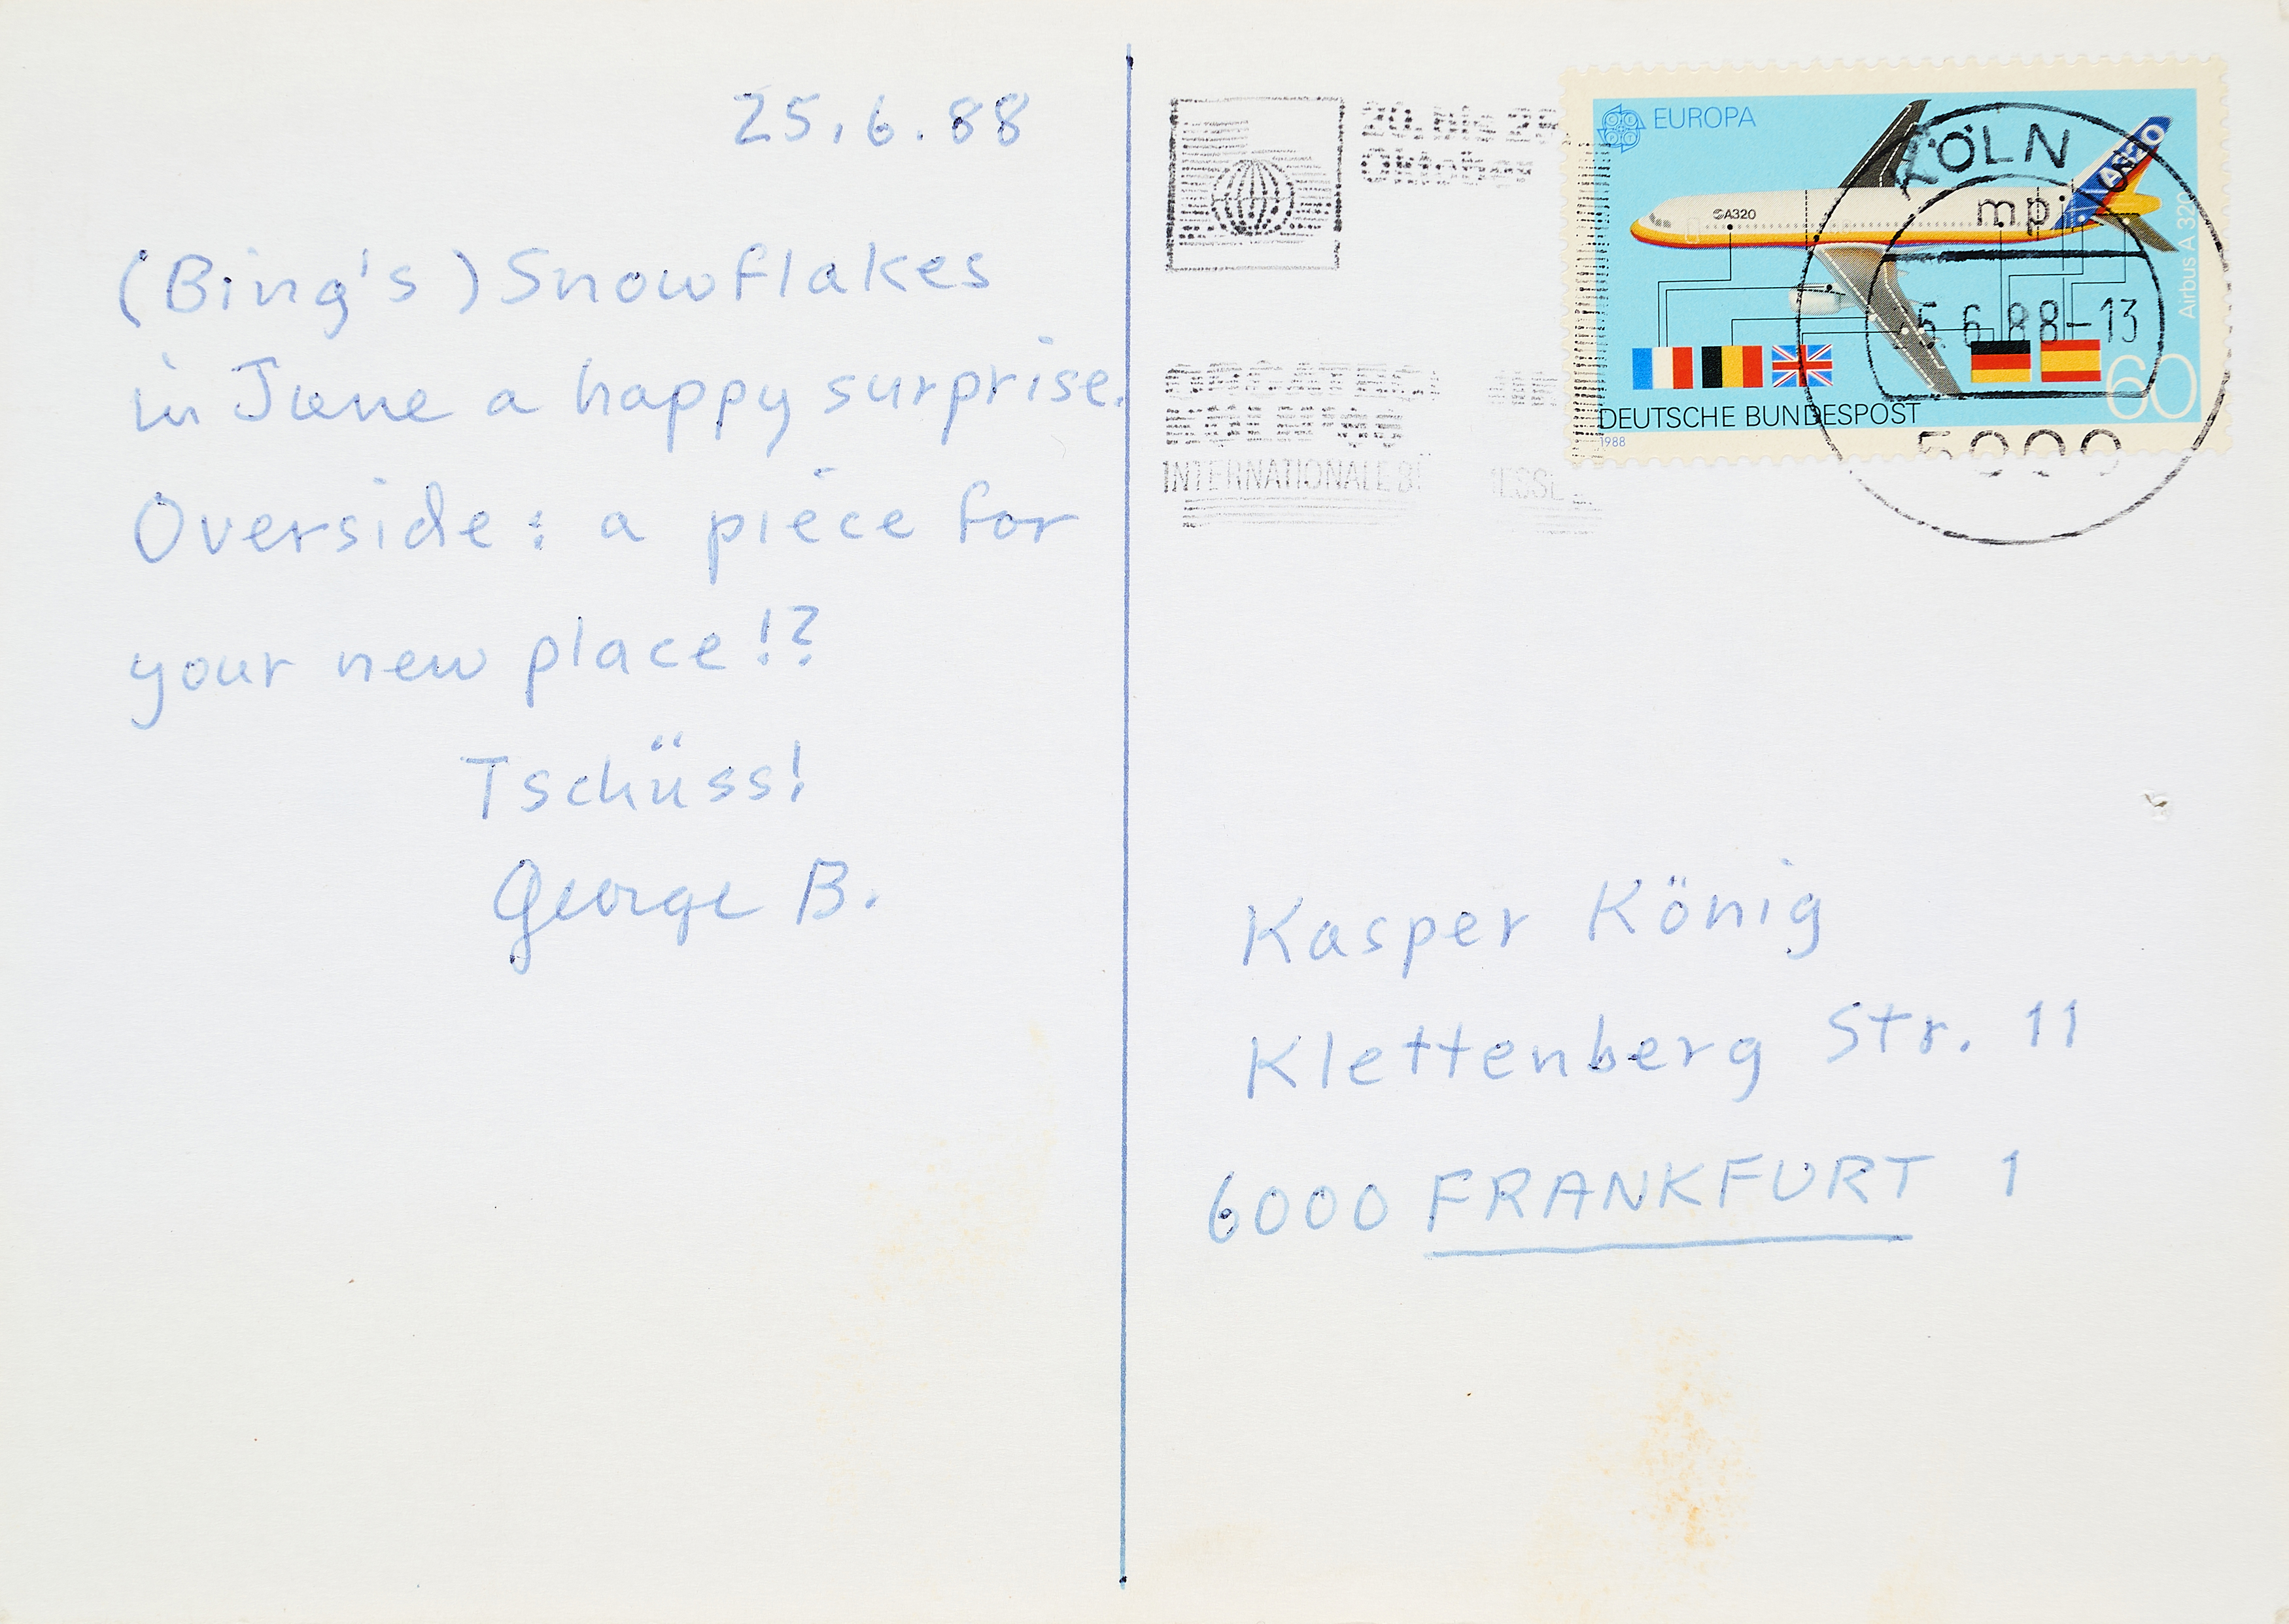 25.6.88
(Bing's) Snowflakes
in June a happy surprise.
Overside: a piece for
your new place!?
Tschüss!
George B.
Oktober
INTERNATIONALE
EUROPA
A320
A320
Airbus A 320
DEUTSCHE BUNDESPOST
60
1988
KÖLN
mpi
6.88-13
5000
Kasper König
Klettenberg Str. 11
6000 FRANKFURT 1